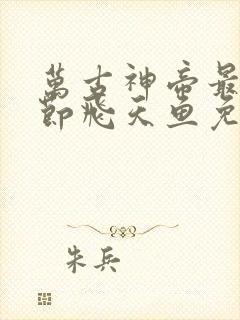 萬古神帝最
節飛天魚免
朱兵